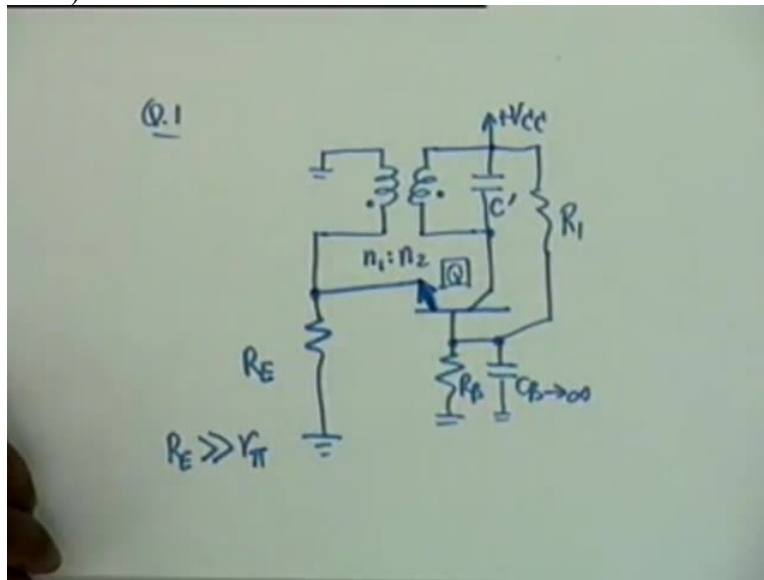 Q.1
+VCC
C'
R1
n1:n2
Q
RE
RB
CB→∞
RE >> rπ